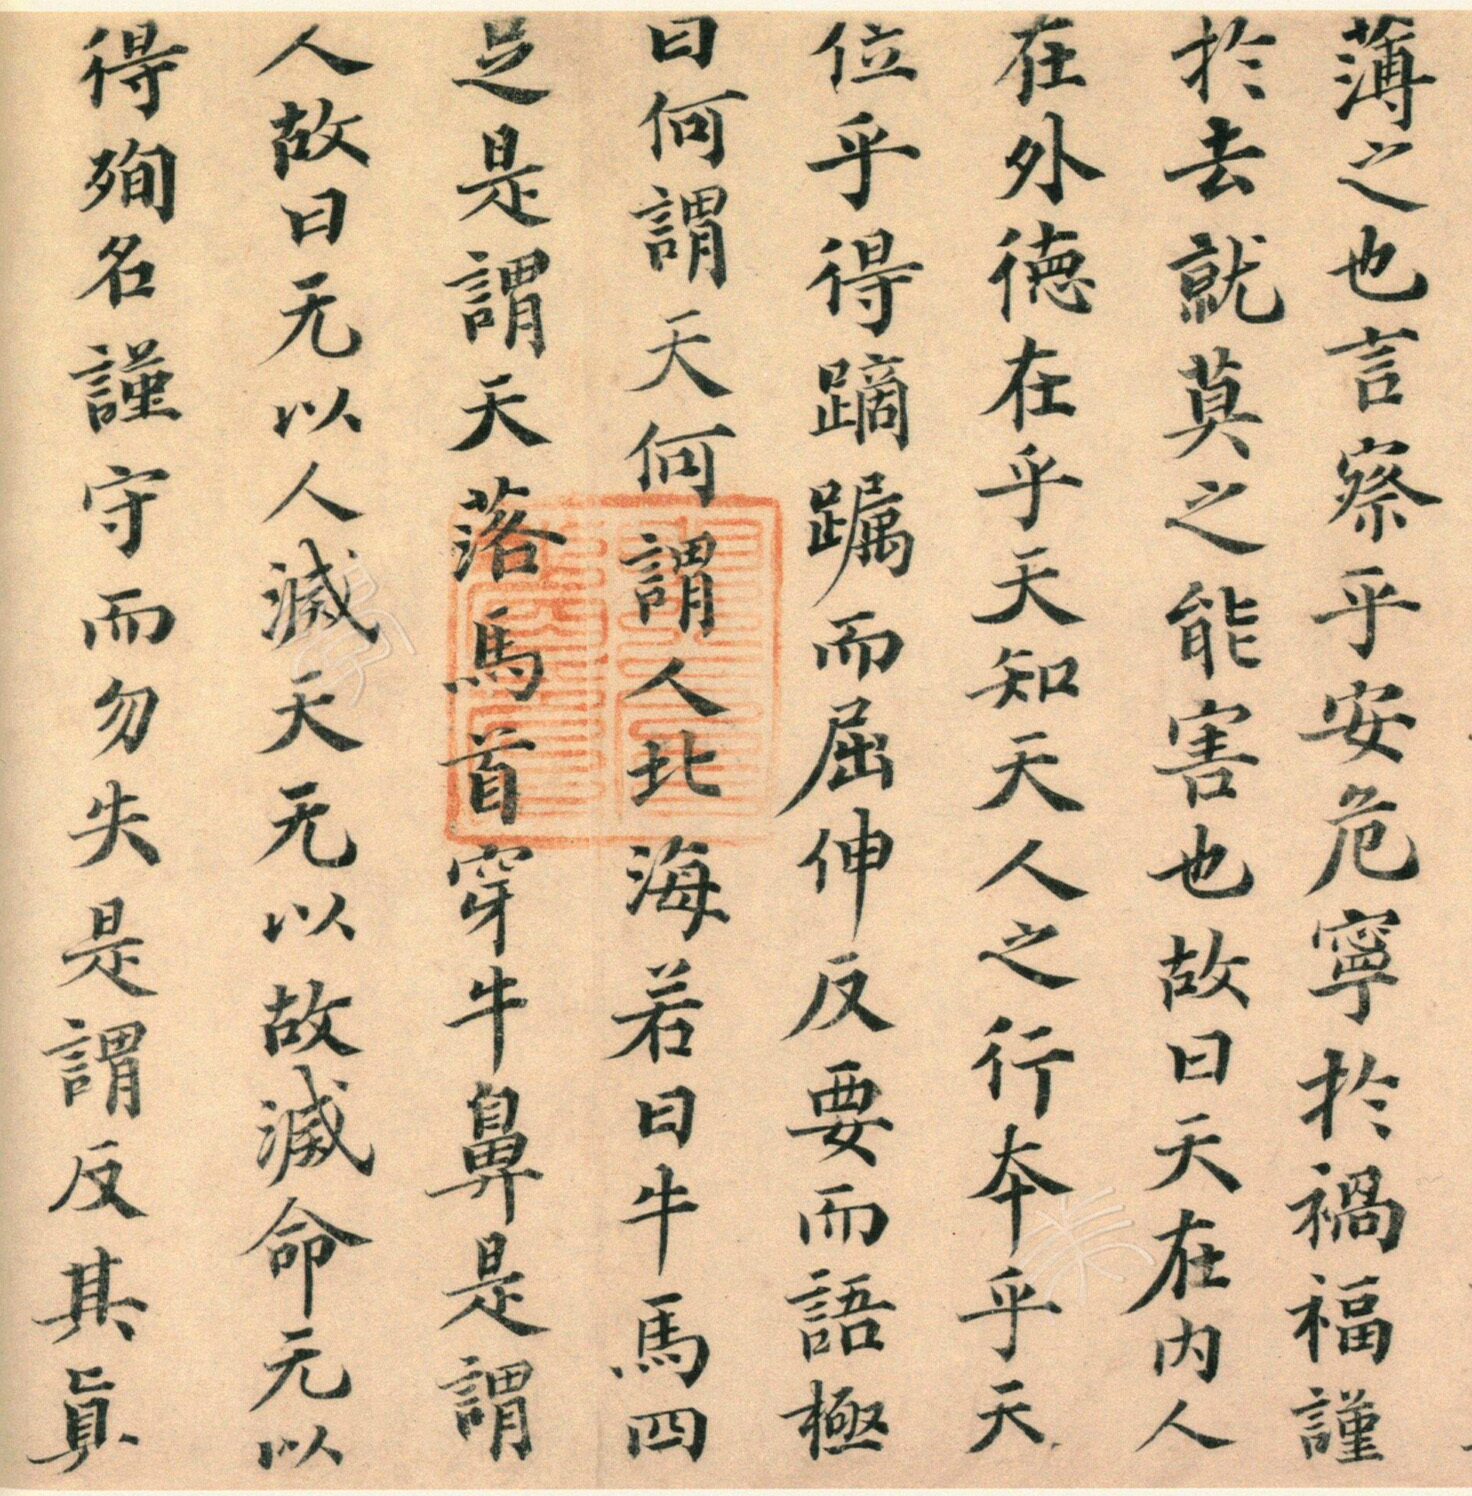 薄之也言察乎安危寧於禍福謹
於去就莫之能害也故曰天在内人
在外德在乎天知天人之行本乎天
位乎得蹢躅而屈伸反要而語極
曰何謂天何謂人北海若曰牛馬四
足是謂天落馬首穿牛鼻是謂
人故曰无以人滅天无以故滅命无以
得殉名謹守而勿失是謂反其真